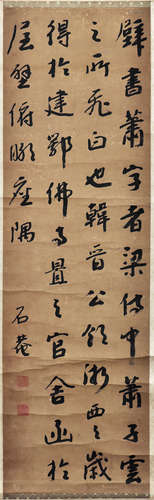 壁書蕭字者梁侍中蕭子雲
之所飛白也韓晉公領浙西之歲
得於建鄴佛寺置之官舍函於
屋壁俯瞰座隅
石菴